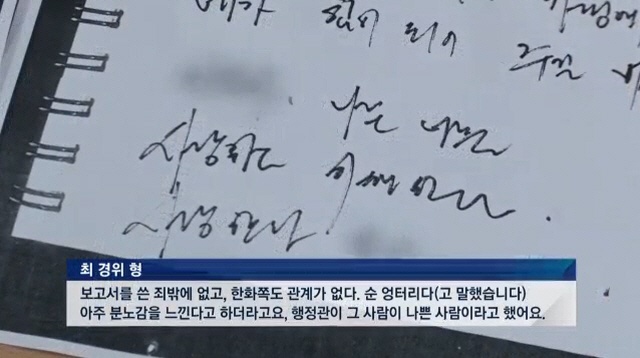 주길
사랑하는 나는 너를
이해한다.
사랑한다
최 경위 형
보고서를 쓴 죄밖에 없고, 한화쪽도 관계가 없다. 순 엉터리다(고 말했습니다)
아주 분노감을 느낀다고 하더라고요, 행정관이 그 사람이 나쁜 사람이라고 했어요.